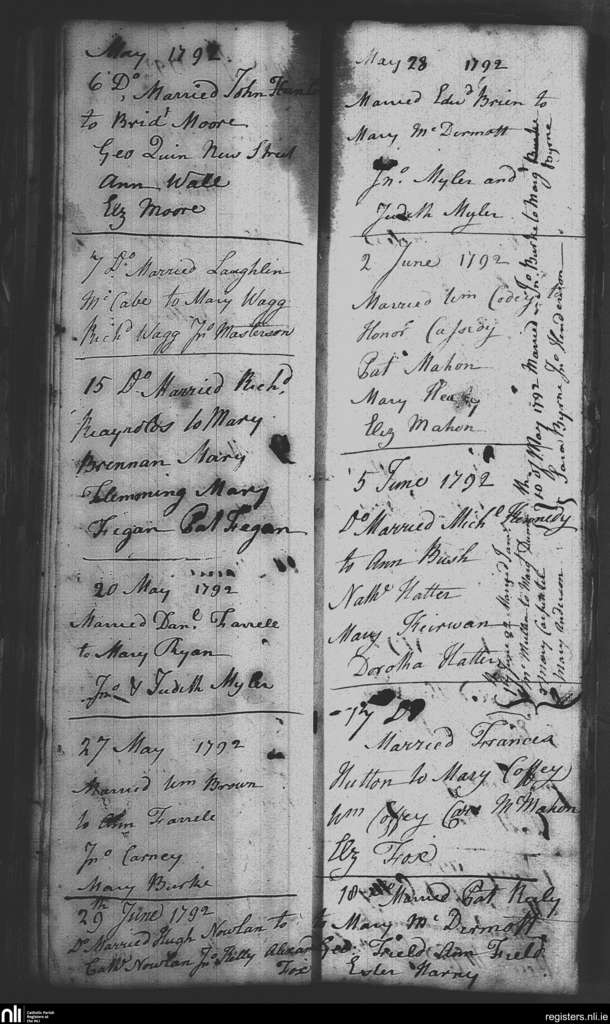 May 1792
6 Do Married John
to Bridt Moore
Geo Quin New Street
Ann Wall
Elz Moore
7 Do Married Laughlin
McCabe to Mary Wagg
Richd Wagg Jno Masterson
15 Do Married Richd
Reaynolds to Mary
Brennan Mary
Flemming Mary
Fegan Pat Fegan
20 May 1792
Married Danl Farrell
to Mary Ryan
Jno & Judith Myler
27 May 1792
Married Wm Brown
to Ann Farrell
Jno Carney
Mary Burke
29th June 1792
Do Married Hugh Nowlan to
Cathe Nowlan Jno Kelly Alexan
Fox
May 28 1792
Married Edwd Brien to
Mary McDermott
Jno Myler and
Judith Myler
2 June 1792
Married Wm Codey to
Honor Cassidy
Pat Mahon
Mary Heany
Eliz Mahon
5 June 1792
Do Married Michl Kennedy
to Ann Bush
Nathl Hatter
Mary Keirwan
Dorotha Hatter
17 Do
Married Frances
Hutton to Mary Coffey
Wm Coffey McMahon
Elz Fox
18 Married Pat Realy
to Mary McDermott
Geo Field Ann Field
Ester Harny
10 of May 1792 Married Jno Burke to Margt Byrne
Sara Byrne Jno Henderson
June Married
Jno Mullen to Mary Dunn
Mary Carpenter
Mary Anderson
nli
Catholic Parish
Registers at
the NLI
registers.nli.ie